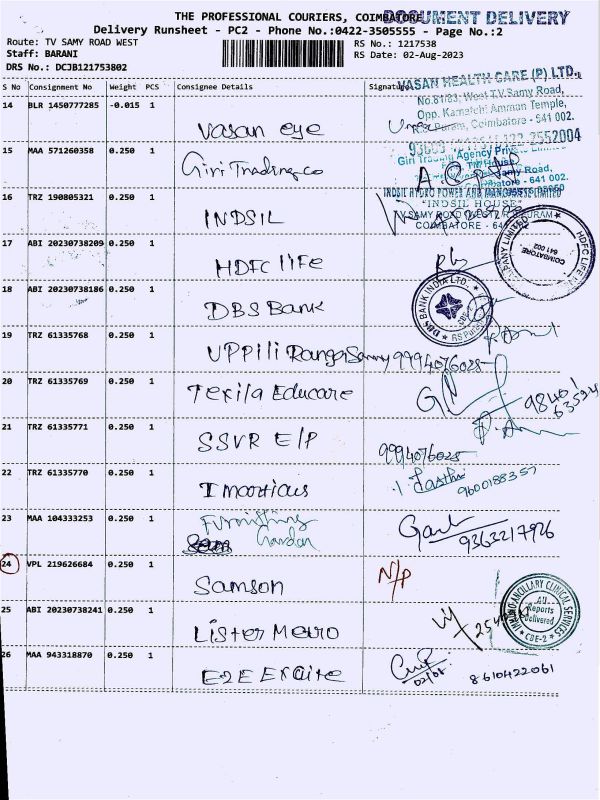 THE PROFESSIONAL COURIERS, COIMBATORE
DOCUMENT DELIVERY
Delivery Runsheet - PC2 - Phone No.:0422-3505555 - Page No.:2
Route: TV SAMY ROAD WEST
RS No.: 1217538
Staff: BARANI
RS Date: 02-Aug-2023
DRS No.: DCJB121753802
S No Consignment No Weight PCS Consignee Details Signature
VASAN HEALTH CARE (P) LTD.,
No.81/83, West T.V.Samy Road,
Opp. Kamatchi Amman Temple,
R.S. Puram, Coimbatore - 641 002.
14 BLR 1450777285 -0.015 1 Vasan eye
2552004
15 MAA 571260358 0.250 1 Giri Trading Co
Giri Trading Agency Private Limited
Samy Road,
Coimbatore - 641 002.
16 TRZ 190805321 0.250 1 INDSIL
INDSIL HYDRO POWER AND MANGANESE LIMITED
"INDSIL HOUSE"
COIMBATORE - 641
17 ABI 20230738209 0.250 1 HDFC life
HDFC LIFE
COIMBATORE
641 002
18 ABI 20230738186 0.250 1 DBS Bank
DBS BANK INDIA LTD.
CBE-2
RS Puram
19 TRZ 61335768 0.250 1 UPPili RangaSamy 9994076028
20 TRZ 61335769 0.250 1 Texila Educare
98401
63594
21 TRZ 61335771 0.250 1 SSVR E/P 9994076028
22 TRZ 61335770 0.250 1 9600188357
23 MAA 104333253 0.250 1 Furnishing
9363217926
24 VPL 219626684 0.250 1 Samson N/P
25 ABI 20230738241 0.250 1 Lister Metro
ANCILLARY CLINICAL SERVICES
All
Reports
Delivered
CBE-2
26 MAA 943318870 0.250 1 E2E
02/08 8610422061